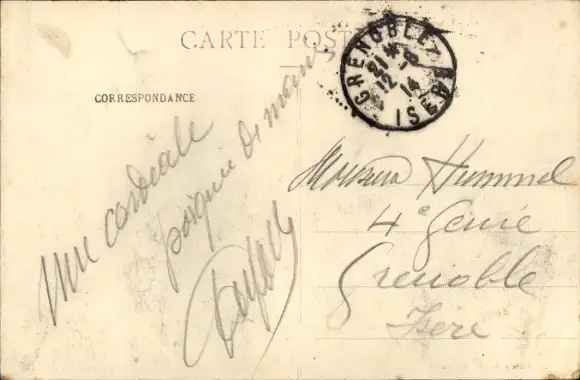 CARTE POSTALE
CORRESPONDANCE
GRENOBLE
21 45
12 - 6
14
ISÈRE
Une cordiale
poignée de main,
Monsieur Hummel
4e Génie
Grenoble
Isère